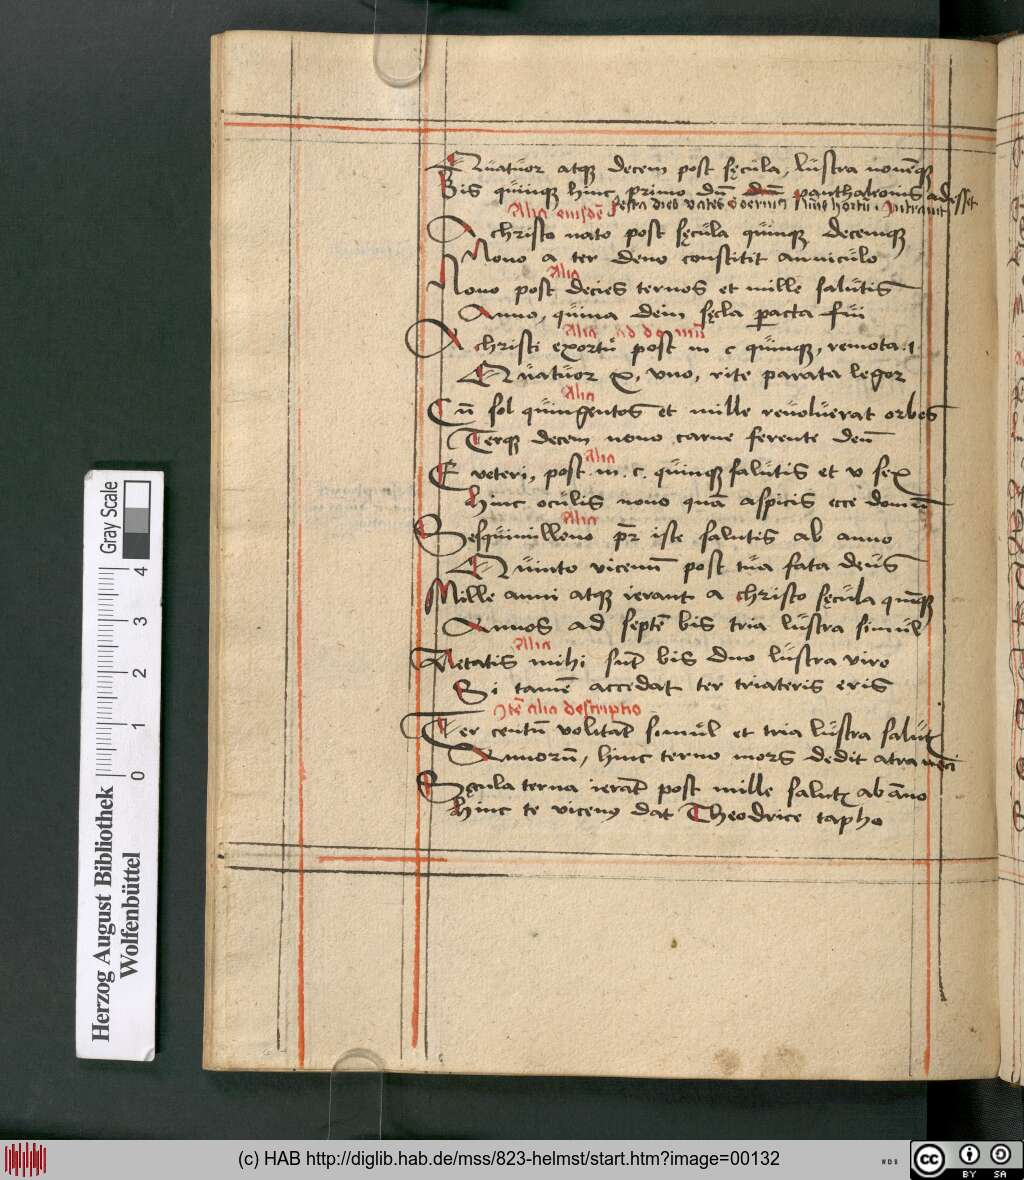 Quatuor atque decem post sęcula, lustra nouēque
Bis quinque hinc primo dū dū panthaleonis adesset
Alia eiusdē festa dies vates coernus hūc hortū intrauit
A christo nato post sęcula quinque decemque
Nono a ter deno constitit anniculo
Alia
Nono post decies ternos et mille salutis
Anno, quina dein sęcla pacta fui
Alia ad domū
A christi exortu post m c quinque, remota .1
Quatuor x, vno, rite parata legor
Alia
Cū sol quingentos et mille reuoluerat orbes
Terque decem nono carne ferente deū
Alia
E veteri, post .m. c. quinque salutis et v sex
hinc oculis nouo quā aspicis ecce domum
Alia
Sesquimilleno pr̄ iste salutis ab anno
Quinto vicenū post tua fata deus
Mille anni atque ierant a christo sęcula quinque
Annos ad septē bis tria lustra simul
Alia
Aetatis mihi sūt bis duo lustra viro
Si tamē accedat ter triateris eris
Itē alia descriptio
Ter centū volitāt simul et tria lustra salutis
Annorū, hinc terno mors dedit atra neci
Sęcula terna ierāt post mille salutis ab āno
hinc te vicenus dat Theodrice tapho
Herzog August Bibliothek
Wolfenbüttel
0 1 2 3 4
Gray Scale
(c) HAB http://diglib.hab.de/mss/823-helmst/start.htm?image=00132
cc BY SA